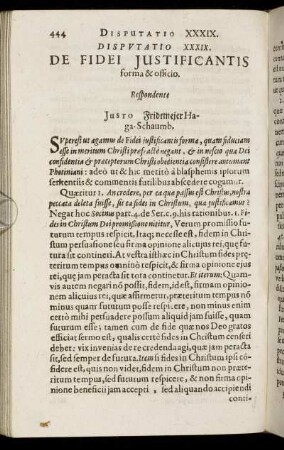 444 DISPUTATIO XXXIX.
DISPVTATIO XXXIX.
DE FIDEI JUSTIFICANTIS
forma & officio.
Respondente
JUSTO Fridemejer Ha-
ga-Schaumb.
SUperest ut agamus de Fidei justificantis forma, quam fiduciam
esse in meritum Christi præfractè negant, & in nescio qua Dei
confidentia & præceptorum Christi obedientia consistere autumant
Photiniani: adeò ut & hic meritò à blasphemis ipsorum
sententiis & commentis futilibus abscedere cogamur.
Quæritur 1. An credere, per ea qua passus est Christus, nostra
peccata deleta fuisse, sit ea fides in Christum, qua justificamur?
Negat hoc Socinus part. 4. de Ser. c. 9. his rationibus. 1. Fi-
des in Christum Dei promissione nititur, Verum promissio fu-
turum tempus respicit. Itaq; necesse est, fidem in Christum
persuasione seu firma opinione alicujus rei, quæ futu-
ra sit contineri. At vestra isthæc in Christum fides præ-
teritum tempus omninò respicit, & sit firma opinione ejus
rei, quæ jam peracta sit tota continetur. Et iterum: Quam-
vis autem negari nō possit, fidem, id est, firmam opinio-
nem alicujus rei, quæ avidissimè apprehenditur, præteritum tempus nō
minus quam futurum posse respicere, non minus enim
certò mihi persuadere possum aliquid jam fuisse, quam
futurum esse: tamen cum de fide quæ nos Deo gratos
efficiat sermo est, qualis certè fides in Christum censeri
debet: vix invenias de re credenda agi, quæ jam peracta
sit, sed semper de futura. Item si fides in Christum ipsi cō-
fidere est, quis non videt, fidem in Christum non præte-
ritum tempus, sed futurum respicere, & non firma opi-
nione beneficii jam accepti, sed aliquando accipiendi
conti-